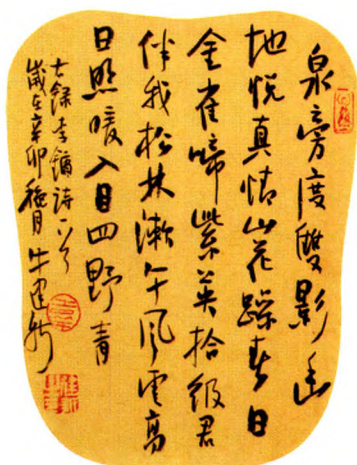 泉旁度雙影幽
地悦真情山花躁春日
金雀啼紫英拾级君
伴我松林漱午風雲高
日照暖入目四野青
録李詩一首
歲在辛卯穐月 牛建